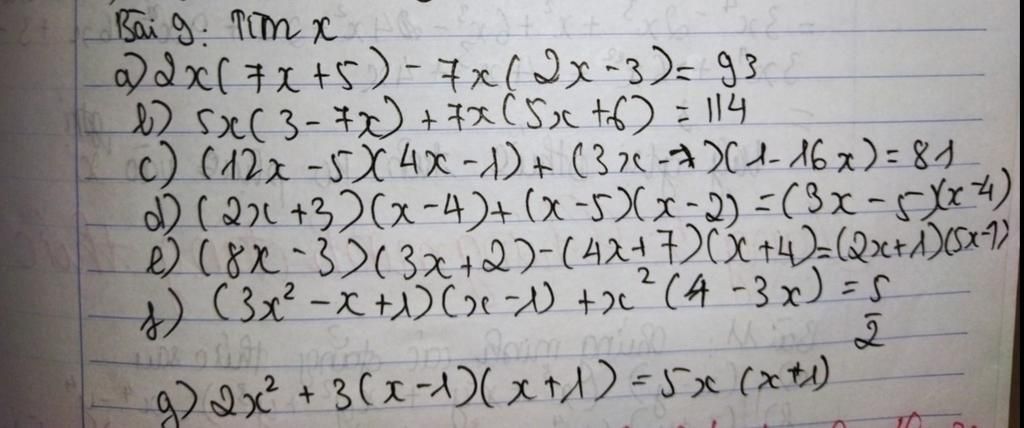 Bài 9: Tìm x
a) 2x(7x+5) - 7x(2x-3) = 93
b) 5x(3-7x) + 7x(5x+6) = 114
c) (12x-5)(4x-1) + (3x-7)(1-16x) = 81
d) (2x+3)(x-4) + (x-5)(x-2) = (3x-5)(x-4)
e) (8x-3)(3x+2) - (4x+7)(x+4) = (2x+1)(5x-1)
f) (3x² - x + 1)(x-1) + x²(4-3x) = 5/2
g) 2x² + 3(x-1)(x+1) = 5x(x+1)